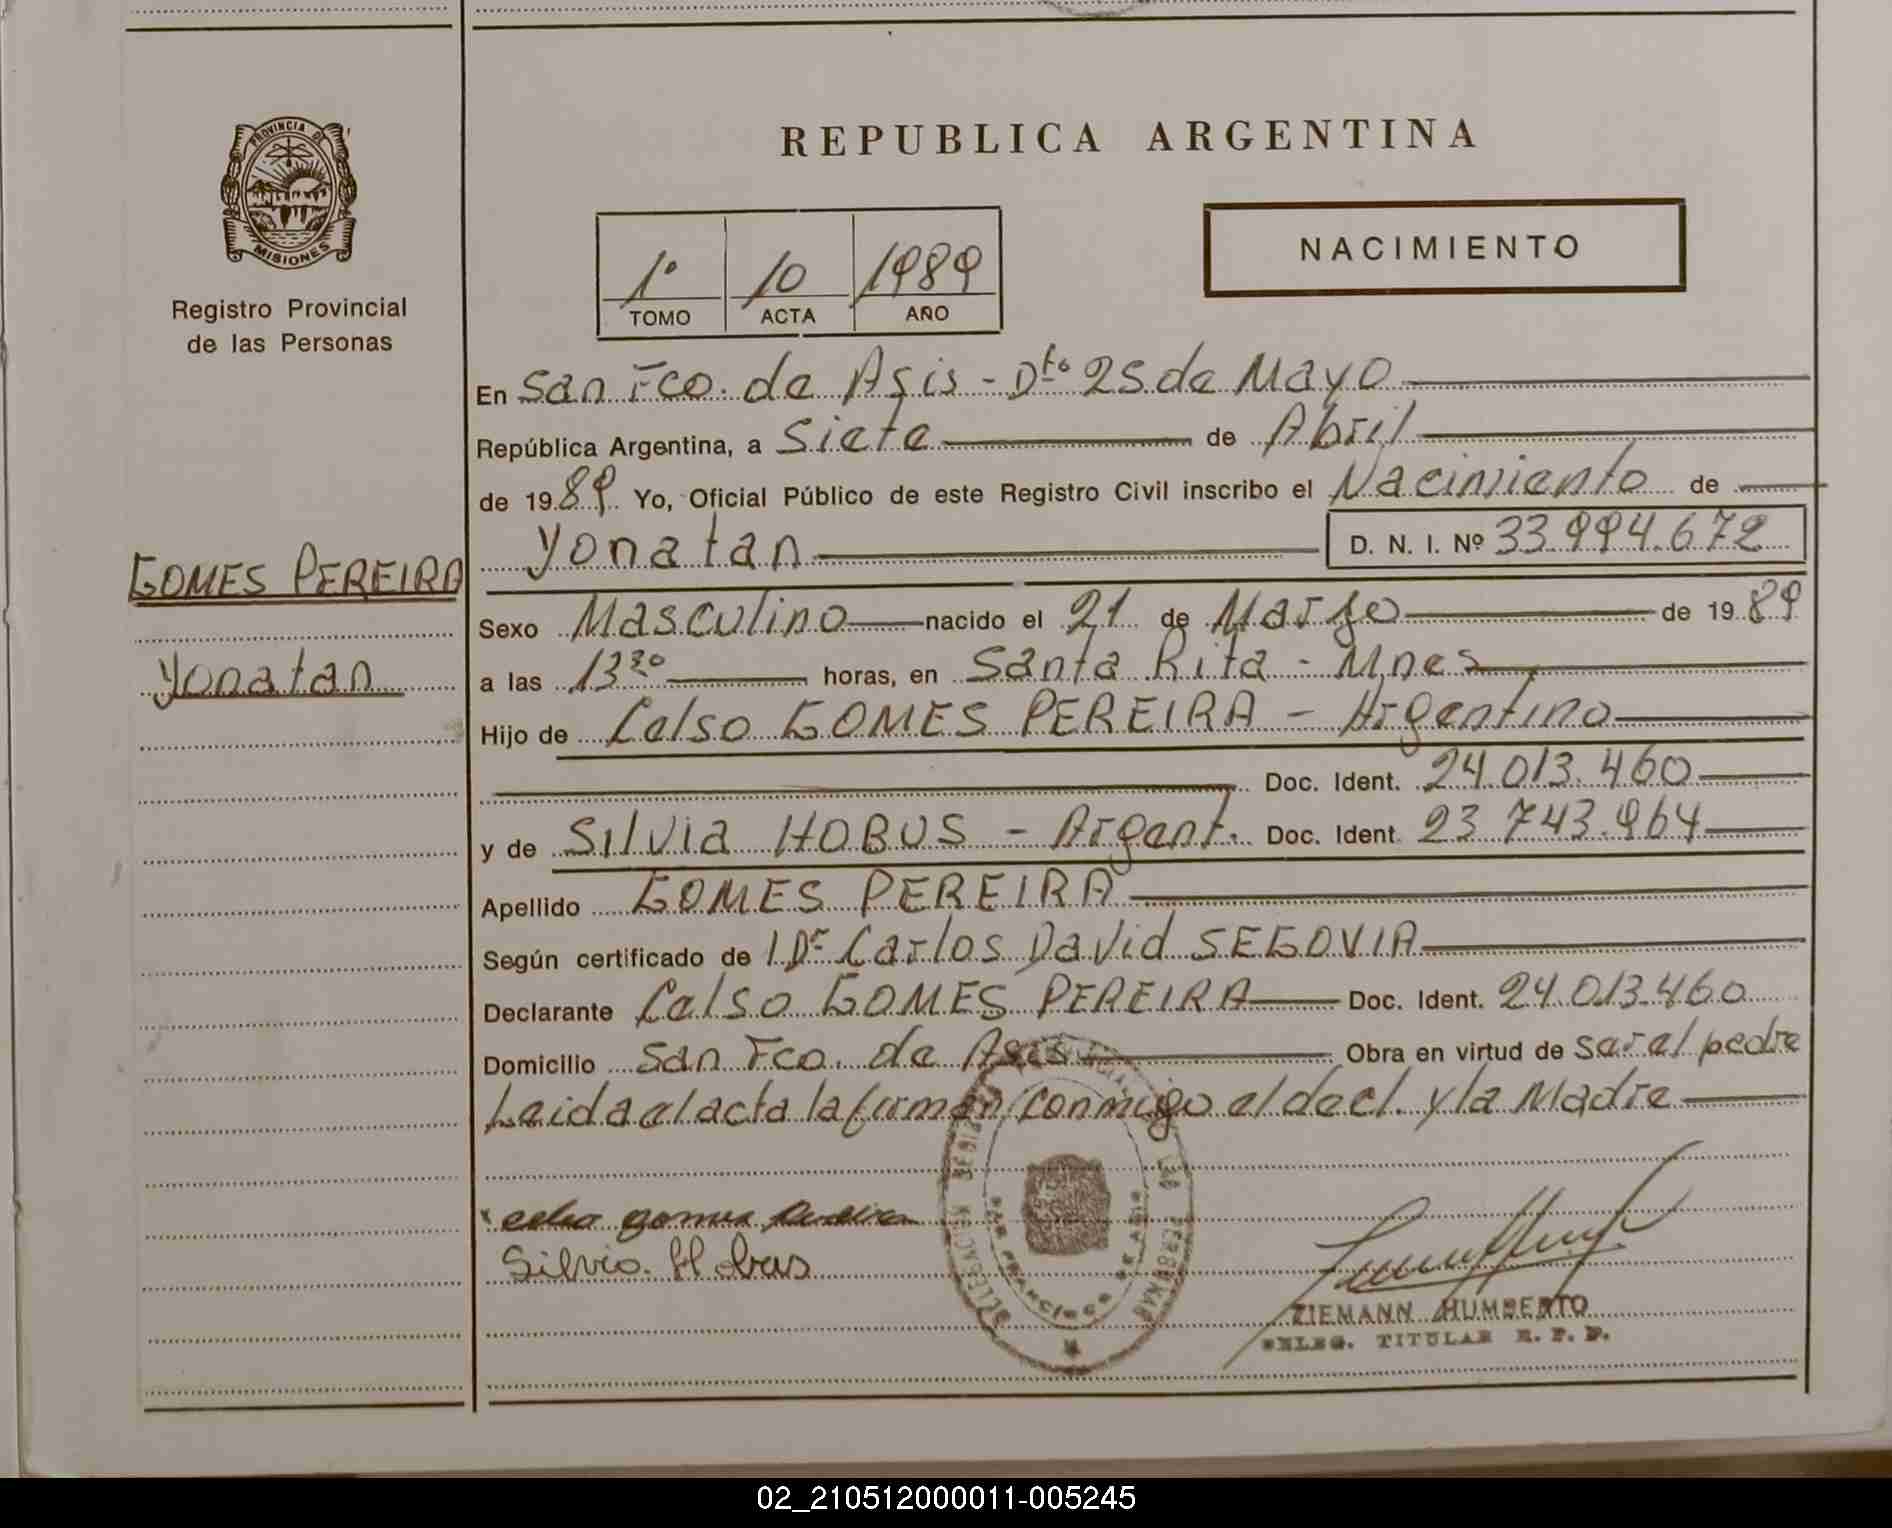 PROVINCIA DE
MISIONES
Registro Provincial
de las Personas
REPUBLICA ARGENTINA
1º 10 1989
TOMO ACTA AÑO
NACIMIENTO
En San Fco. de Asis - Dto 25 de Mayo
República Argentina, a Siete de Abril
de 1989 Yo, Oficial Público de este Registro Civil inscribo el Nacimiento de
Yonatan D. N. I. Nº 33.994.672
GOMES PEREIRA
Yonatan
Sexo Masculino nacido el 21 de Marzo de 1989
a las 13 30 horas, en Santa Rita - Mnes
Hijo de Celso GOMES PEREIRA - Argentino
Doc. Ident. 24.013.460
y de Silvia HOBUS - Argent. Doc. Ident. 23.743.964
Apellido GOMES PEREIRA
Según certificado de Dr Carlos David SEGOVIA
Declarante Celso GOMES PEREIRA Doc. Ident. 24.013.460
Domicilio San Fco. de Asis Obra en virtud de ser el padre
Leida el acta la firman conmigo el decl. y la Madre
celso gomes Pereira
Silvia Hobus
SAN FRANCISCO DE ASIS
ZIEMANN HUMBERTO
DELEG. TITULAR R. P. P.
02_210512000011-005245